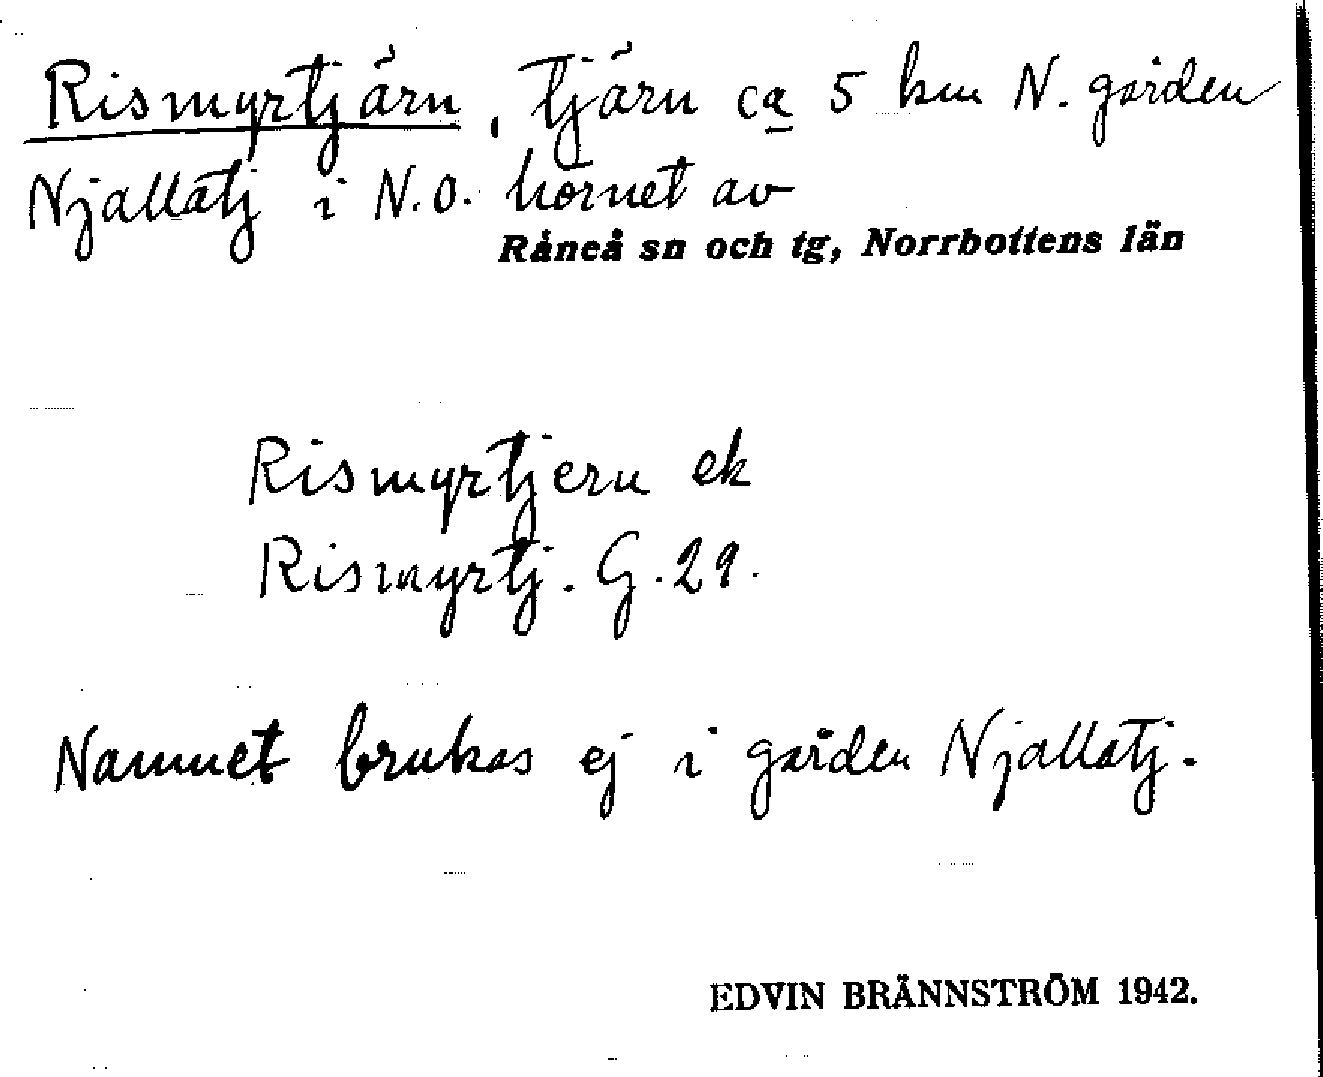 Rismyrtjärn, tjärn ca 5 km N. gården
Njallatj i N.O. hörnet av
Råneå sn och tg, Norrbottens län
Rismyrtjern ek
Rismyrtj. G. 29.
Namnet brukas ej i gården Njallatj.
EDVIN BRÄNNSTRÖM 1942.